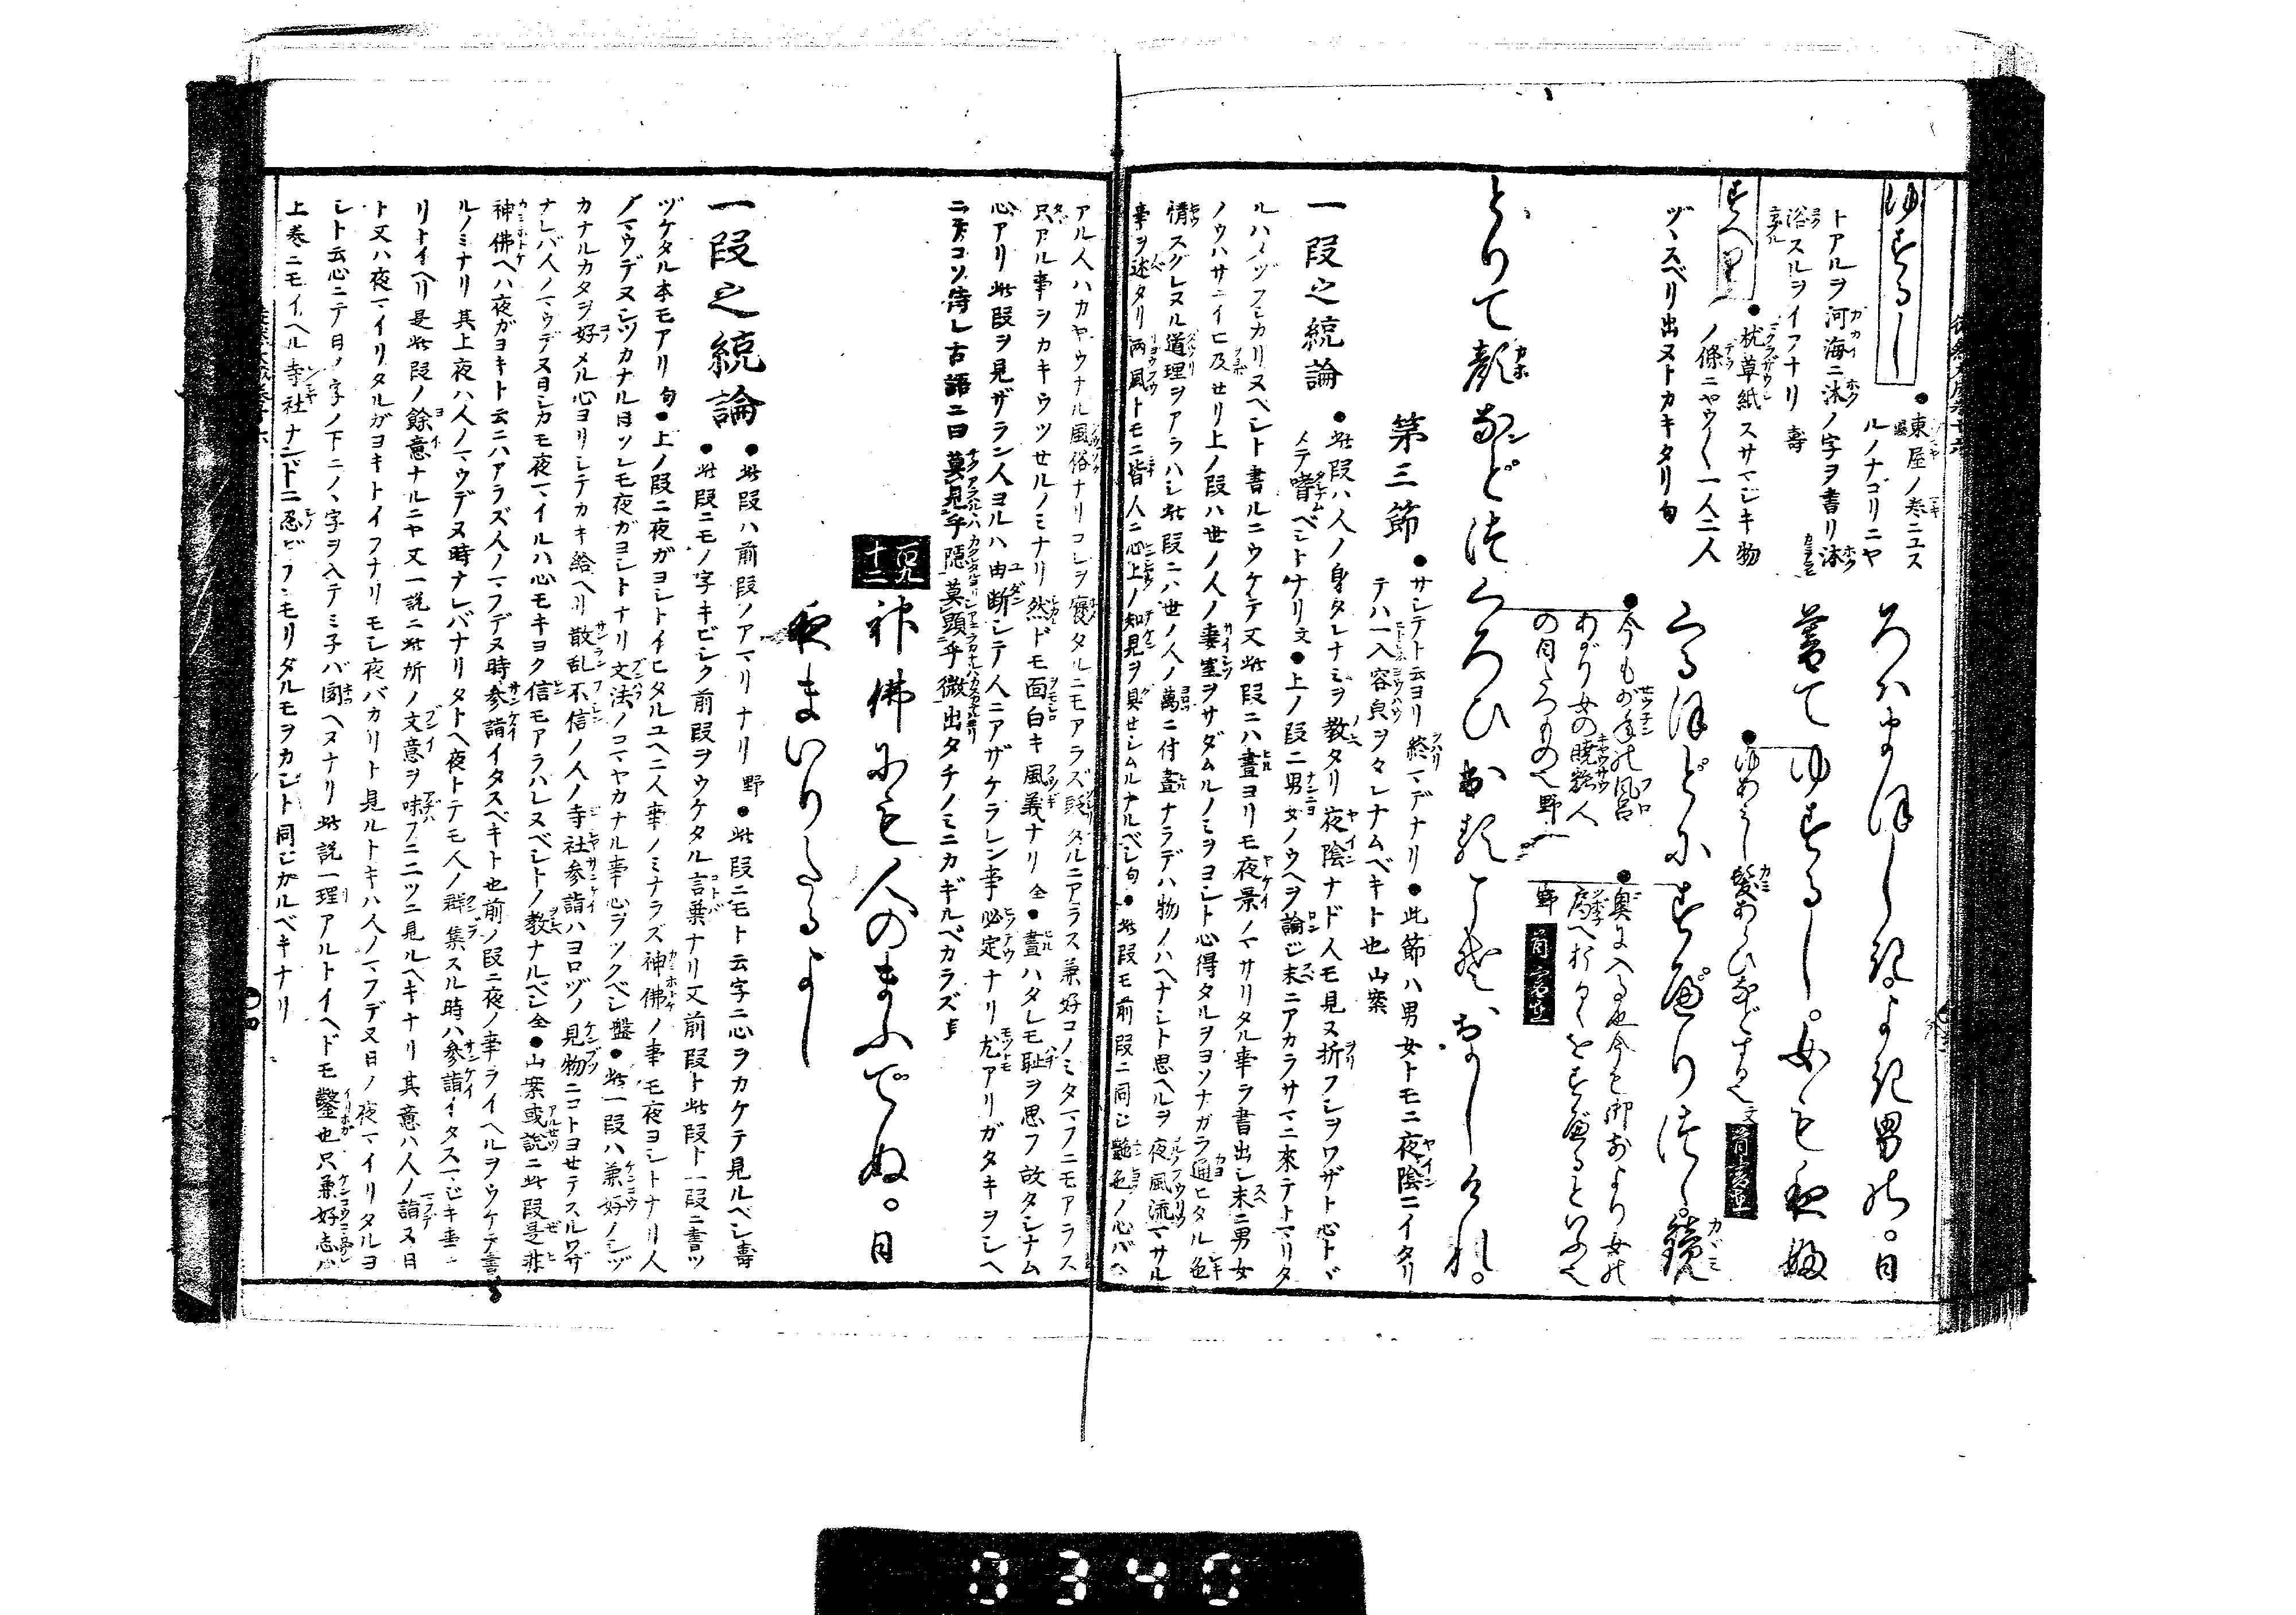 ゆするし
●東屋ノ巻ニユスルノナゴリニヤ
トアルヲ河海ニ沐ノ字ヲ書リ沐
浴スルヲイフナリ 壽
すべり
●枕草紙スサマシキ物
ノ條ニヤウ〱一人二人
ヅヽスベリ出ヌトカキタリ句
ろハまほしけれ。よき男の。日
暮てゆするし。女も夜ふ
●ゆするし髪あらひなどする也文
くるほどにすべりつゝ。鏡
●今もお湯殿風呂
あがり女の暁粧人
の目しろものへ野
●奥に入る也今も御前より女の
局へ行くをすべるといふ也
野
とりて顔などつくろひ出るこそ、おかしけれ。
第三節 ●サシテト云ヨリ終マデナリ●此節ハ男女トモニ夜陰ニイタリ
テハ一入容貞ヲタシナムベキト也山案
一段之統論 ●此段ハ人ノ身タシナミヲ教タリ夜陰ナド人モ見ヌ折フシヲワザト心トヾ
メテ嗜ベシトナリ文●上ノ段ニ男女ノウヘヲ論ジ末ニアカラサマニ來テトマリタ
ルハメヅラシカリヌヘシト書ルニウケテ又此段ニハ晝ヨリモ夜景ノマサリタル事ヲ書出シ末ニ男女
ノウハサニイヒ及せリ上ノ段ハ世ノ人ノ妻室ヲサダムルノミヲヨシト心得タルヲヨソナガラ通ヒタル色
情スグレヌル道理ヲアラハシ此段ニハ世ノ人ノ萬ニ付晝ナラデハ物ノハヘナシト思ヘルヲ夜風流マサル
事ヲ述タリ両風トモニ皆人ニ心上ノ知見ヲ具せシムルナルベシ句●此段モ前段ニ同シ艶色ノ心バヘ
アル人ハカヤウナル風俗ナリコレヲ褒タルニモアラズ貶タルニアラス兼好コノミタマフニモアラス
只アル事シカキウツせルノミナリ然ドモ面白キ風義ナリ全●晝ハタレモ耻ヲ思フ故タシナム
心アリ此段ヲ見ザラン人ヨルハ由断シテ人ニアザケラレン事必定ナリ尤アリガタキヲシヘ
ニ
コソ侍レ古語ニ曰莫見乎隱莫顕乎微出タチノミニカギルベカラズ
百九十二 神佛にも人のまふでぬ。日
夜まいりたるよし
一段之統論 ●此段ハ前段ノアマリナリ野●此段ニモト云字ニ心ヲカケテ見ルベシ壽
●此段ニモノ字キビシク前段ヲウケタル言葉ナリ又前段ト此段ト一段ニ書ツ
ヅケタル本モアリ句●上ノ段ニ夜ガヨシトイヒタルユヘニ人事ノミナラズ神佛ノ事モ夜ヨシトナリ人
ノマウデヌシツカナル日ソレモ夜ガヨシトナリ文法ノコマヤカナル事心ヲツクベシ盤●此一段ハ兼好ノシヅ
カナルカタヲ好メル心ヨリシテカキ給ヘリ散乱不信ノ人ノ寺社参詣ハヨロヅノ見物ニコトヨせテスルワザ
ナレバ人ノマウデヌ日シカモ夜マイルハ心モキヨク信モアラハレヌベシトノ教ナルベシ全●山案或説ニ此段是非
神佛ヘハ夜ガヨキト云ニハアラズ人ノマフデヌ時参詣イタスベキト也前ノ段ニ夜ノ事ヲイヘルヲウケテ書
ルノミナリ其上夜ハ人ノマウデヌ時ナレバナリタトヘ夜トテモ人ノ群集スル時ハ参詣イタスマジキ事ニ
リトイヘリ是此段ノ餘意ナルニヤ又一説ニ此所ノ文意ヲ味フニ二ツニ見ルヘキナリ其意ハ人ノ詣ヌ日
ト又ハ夜マイリタルガヨキトイフナリモシ夜バカリト見ルトキハ人ノマフデヌ日ノ夜マイリタルヨ
シト云心ニテ日ノ字ノ下ニノヽ字ヲ入テミ子バ聞ヘヌナリ此説一理アルトイヘドモ鑿也只兼好志
上巻ニモイヘル寺社ナンドニ忍ビテコモリダルモヲカシト同ジカルベキナリ
0340